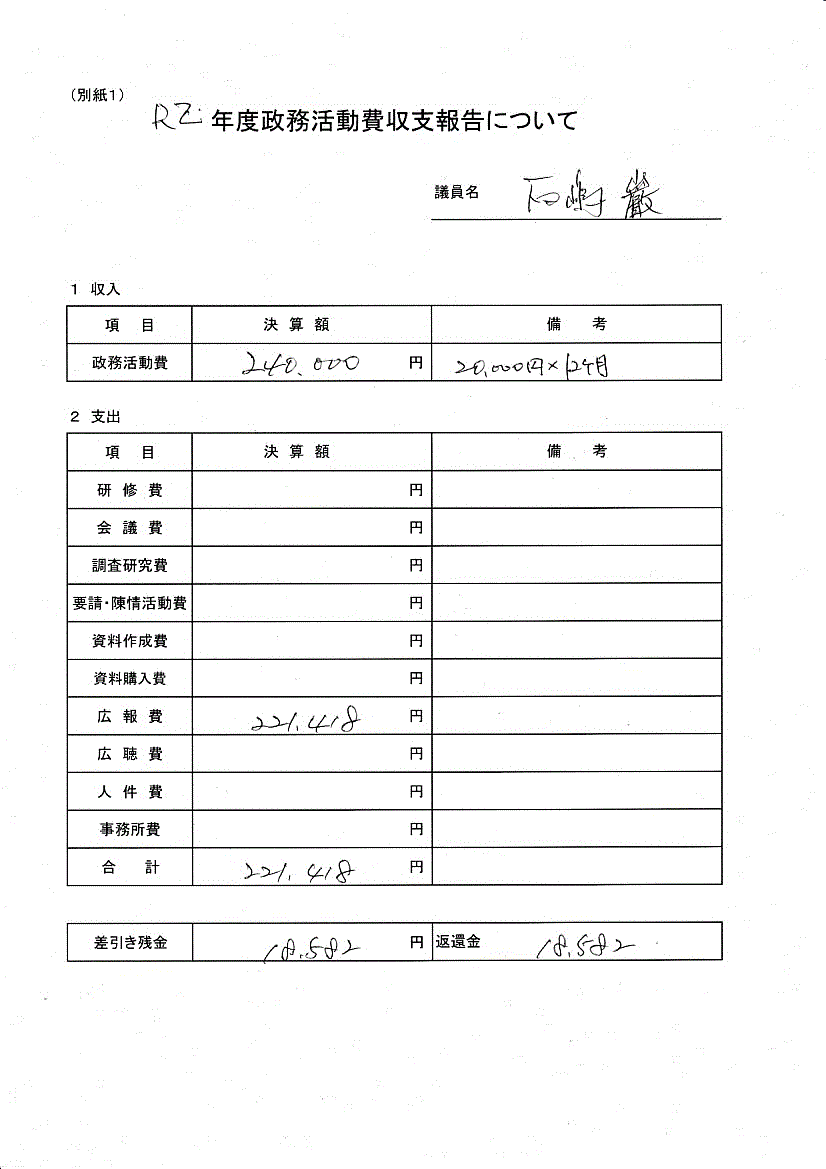 （別紙１）
R2 年度政務活動費収支報告について
議員名 石嶋 巌
１ 収入
項 目 決 算 額 備 考
政務活動費 240,000 円 20,000円×12ヶ月
２ 支出
項 目 決 算 額 備 考
研 修 費 円
会 議 費 円
調査研究費 円
要請・陳情活動費 円
資料作成費 円
資料購入費 円
広 報 費 221,418 円
広 聴 費 円
人 件 費 円
事務所費 円
合 計 221,418 円
差引き残金 18,582 円 返還金 18,582